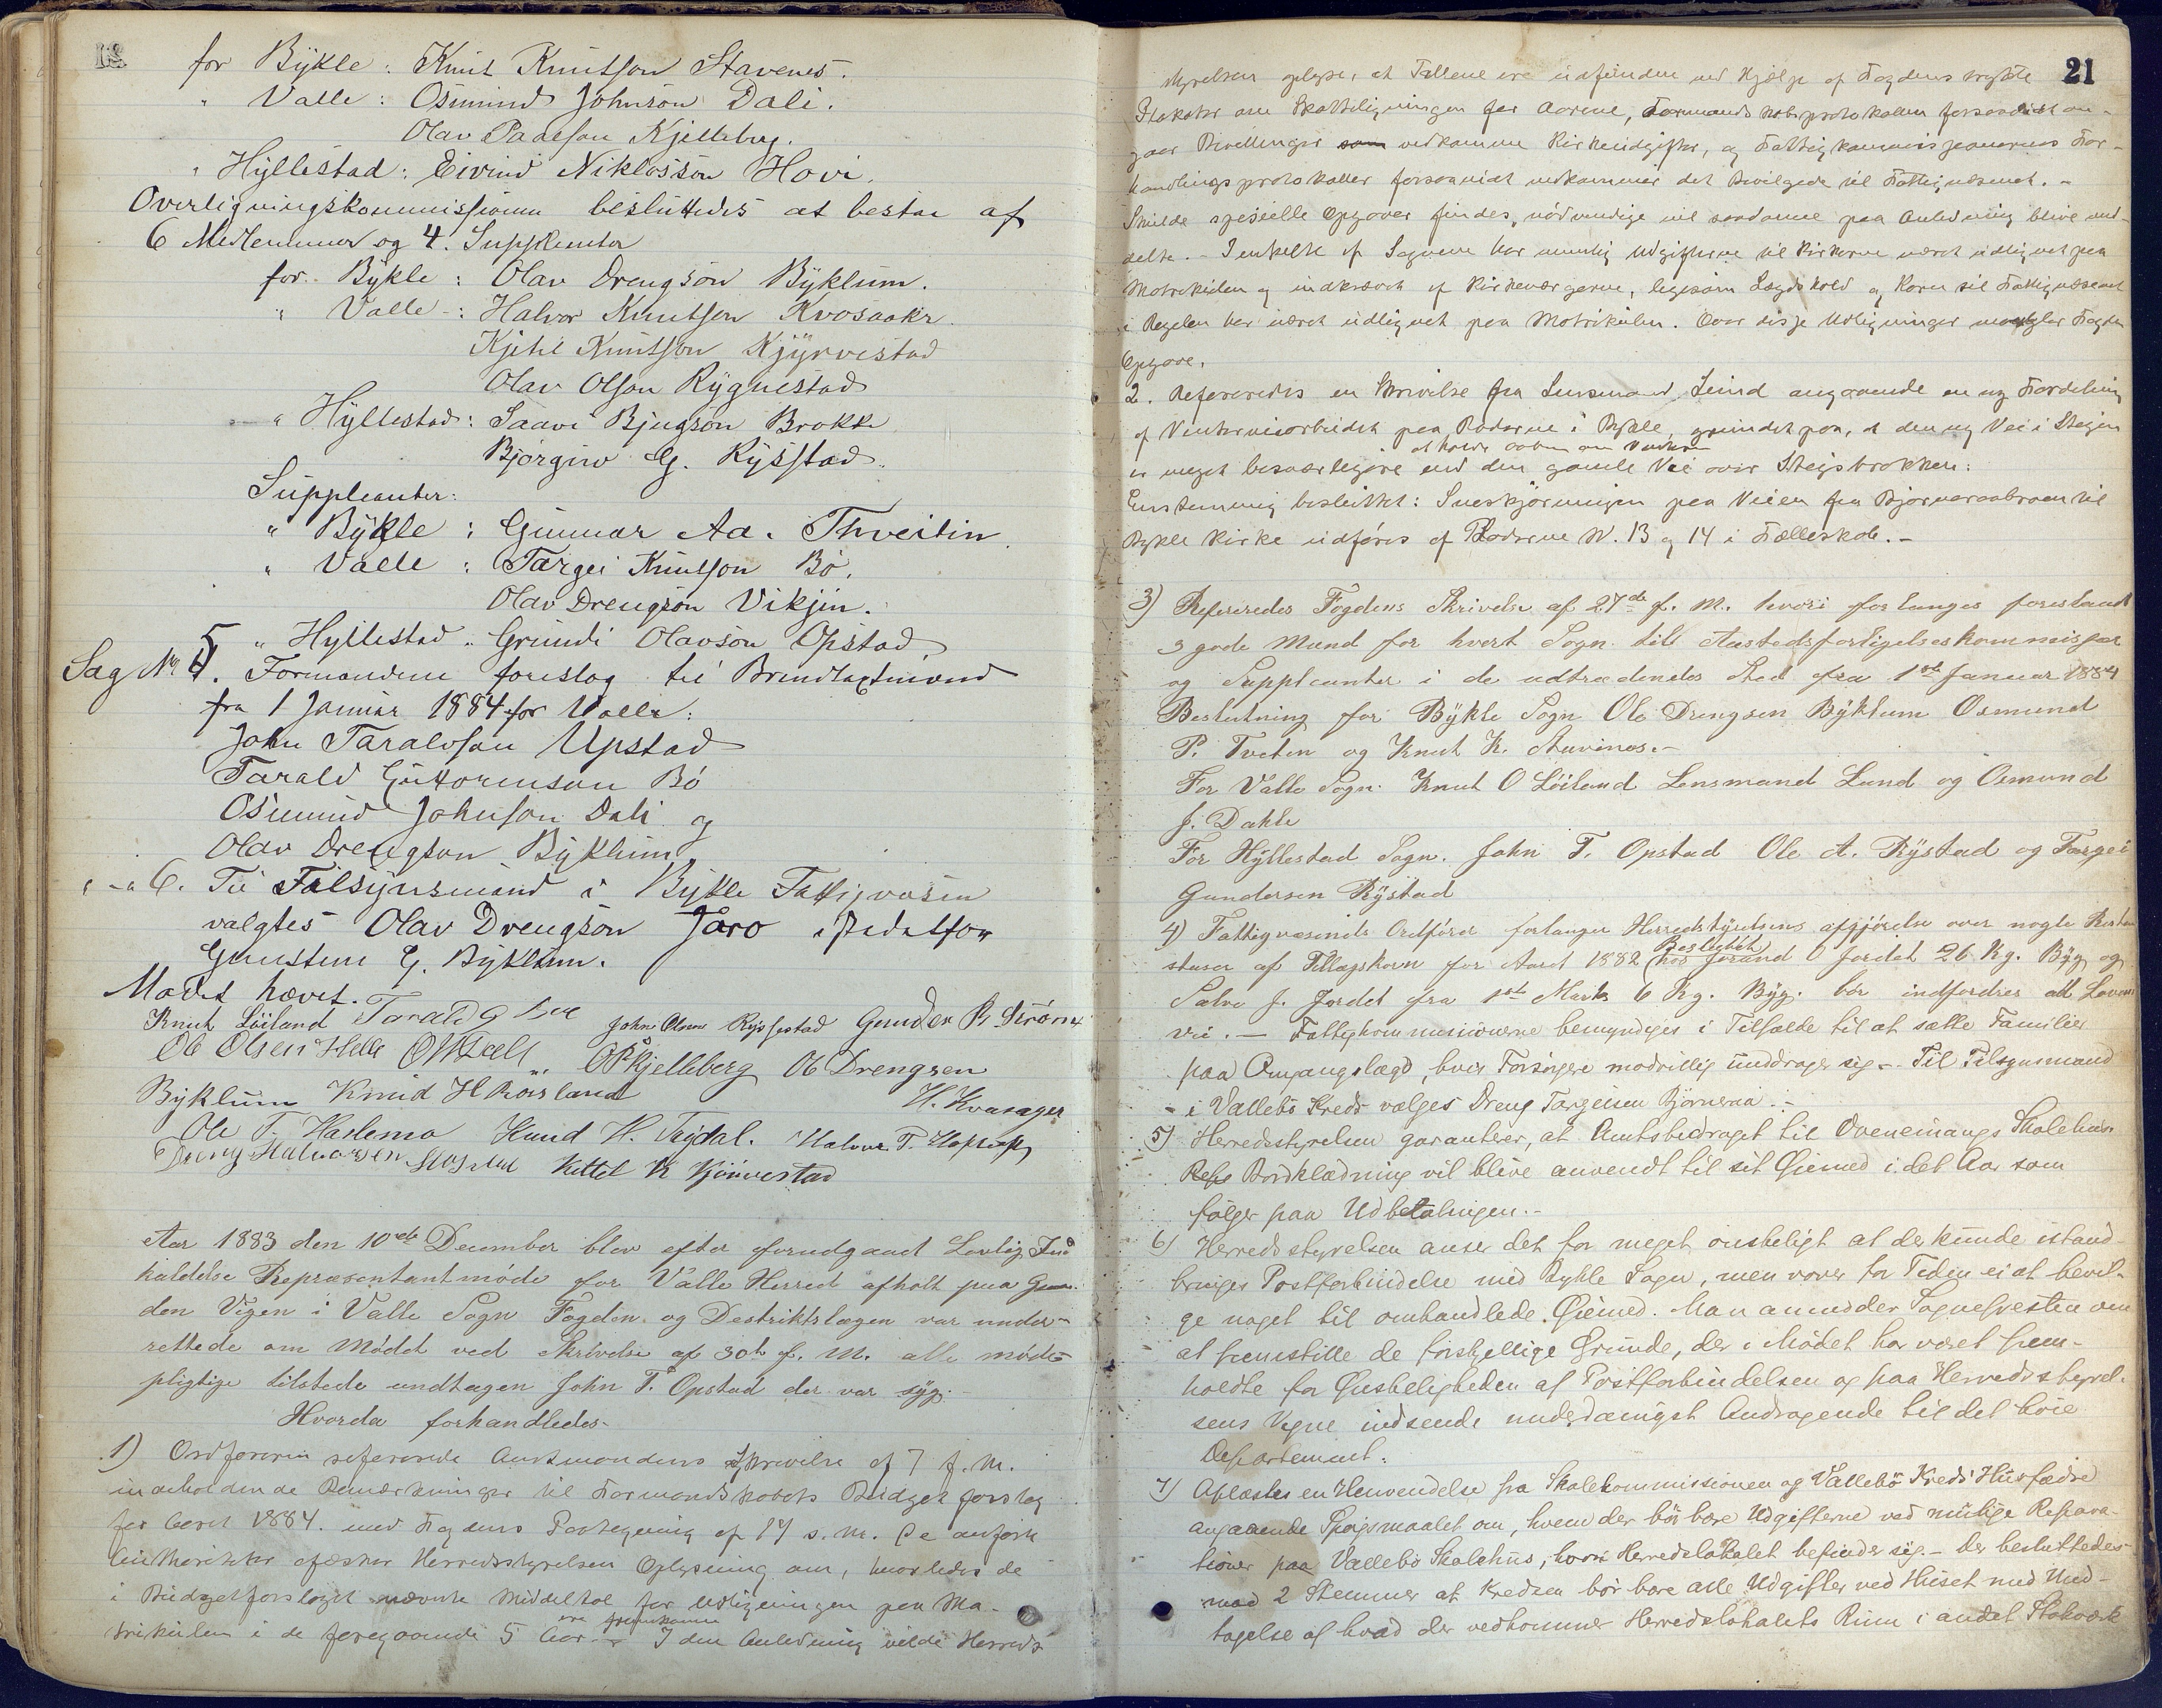 for Bykle: Knut Knutson Stavenes.
" Valle: Osmund Johnson Dali.
Olav Paalson Kjelleberg.
" Hyllestad: Eivind Niklosson Hovi.
Overligningskommissionen besluttedes at bestaa af
6 Medlemmer og 4. Suppleanter
for Bykle: Olav Drengson Byklum.
" Valle: Halvor Knutson Kvosaaker
Kjetil Knutson Kjyrvestad
Olav Olson Rygnestad
" Hyllestad: Saavi Bjugson Brokke
Bjørgiv G. Rysstad.
Suppleanter:
" Bykle: Gunnar Aa. Thveitin
" Valle: Targei Knutson Bø.
Olav Drengson Vikjin.
" Hyllestad " Grundi Olavson Opstad
Sag No 5. Formændene foreslog til Brandtaxtmænd
fra 1 Januar 1884 for Valle:
John Taraldson Upstad
Tarald Guttormson Bø
Osmund Johnson Dali og
Olav Drengson Byklum
" - " 6. Til Tilsynsmand i Bykle Fattigvæsen
valgtes Olav Drengson Jaro istedetfor
Gunsteen G. Byklum.
Mødet hævet.
Knut Løiland Tarald G Bø John Olsen Rysstad Gunder P. Strømm
Ole Olsen Helle O P Kjelleberg Ole Drengsen
Byklum Knud H Roisland H. Kvasager
Ole T. Harlemo Knud H. Trydal. Halvor T.
Dreng Halvorsen Kittel K Kjørvestad
Aar 1883 den 10de December blev efter forudgaaet Lovlig Ind
kaldelse Repræsentantmøde for Valle Herred afholt paa Gaar
den Vigen i Valle Sogn Fogden og Destriktslægen var under-
rettede om Mødet ved Skrivelse af 30te f. M. alle møde-
pligtige tilstede undtagen John T. Opstad der var syg.
Hvorda forhandledes
1) Ordføreren refererede Amtmandens Skrivelse af 7 f. M.
indeholdende Bemærkninger til Formandskabets Budget forslag
for Aaret 1884. med Fogdens Paategning af 17 s. M. De anførte
æsker Herredsstyrelsen Oplysning om, hvorledes de
i Budgetforslaget nævnte Middeltal for Udligningen paa Ma-
trikulen i de foregaaende 5 Aar ere fremkomne - I den Anledning vilde Herreds-
21
styrelsen oplyse, at Tallene ere udfundne ved Hjælp af Fogdens trykte
Plakater om Skatteligningen for Aarene, Formandskabsprotokollen forsaavidt an-
gaar Bevillinger vedkomme Kirkeudgifter, og Fattigkommissionernes For-
handlingsprotokoller forsaavidt vedkommer det Bevilgede til Fattigvæsenet. -
Skulde specielle Opgaver findes nødvendige vil saadanne paa Anledning blive med-
delte. - I enkelte af Sognene har nemlig Udgifterne til Kirkerne været udlignet paa
Matrikulen og indkrævet af Kirkeværgerne, ligesom Lægdshold og Korn til Fattigvæsenet
i Regelen har været udlignet paa Matrikulen. Over disse Udligninger mangler Fogden
Opgave.
2. Refereredes en Skrivelse fra Lensmand Lund angaaende en ny Fordeling
af Vinterveiarbeidet paa Roderne i Bykle, grundet paa, at den ny Vei i Steigen
er meget besværligere at holde aaben om Vinteren end den gamle Vei over Steigsbrokken:
Enstemmig besluttet: Sneskjøringen paa Veien fra Bjørnaraabroen til
Bykle Kirke udføres af Roderne N. 13 og 14 i Fælleskab. -
3) Refereredes Fogdens Skrivelse af 27de f. M. hvori forlanges foreslaaet
3 gode Mænd for hvert Sogn til Aastedsforligelseskommissær
og Suppleanter i de udtrædendes Sted fra 1ste Januar 1884
Beslutning for Bykle Sogn Ole Drengsen Byklum Osmund
P. Tveten og Knut K. Stavenes. -
For Valle Sogn Knut O Løiland Lensmand Lund og Osmund
J. Dahle
For Hyllestad Sogn. John T. Opstad Ole A. Rystad og Targei
Gundersen Rystad
4) Fattigvæsenets Ordfører forlanger Herredstyrelsens afgjørelse over nogle Restan
stuser af Tillægskorn for Aaret 1882 (Besluttet) hos Jorand O Jordet 26 Kg. Byg og
Salve J. Jordet fra 1ste Marts 6 Kg. Byg. bør indfordres ad Lovens
vei. - Fattigkommissionerne bemyndiges i Tilfælde til at sætte Familier
paa Omgangslægd, hvis Forsørgere modvillig unddrager sig. - Til Tilsynsmand
- i Vallebø Kreds valges Dreng Targeisen Bjørneraa. -
5) Herredsstyrelsen garanterer, at Amtsbidraget til Ovenemangs Skolehus
Bordklædning vil blive anvendt til sit Øiemed i det Aar som
følger paa Udbetalingen. -
6) Herredsstyrelsen anser det for meget ønskeligt at der kunde istand-
bringes Postforbindelse med Bykle Sogn, men vover for Tiden ei at bevil-
ge noget til omhandlede Øiemed. Man anmodder Sognepresten om
at fremstille de forskjellige Grunde, der i Mødet har været frem-
holdte for Ønskeligheden af Postforbindelsen og paa Herredsstyrel-
sens Vegne indsende underdanigst Andragende til det høie
Departement.
7) Oplæstes en Henvendelse fra Skolekommissionen og Vallebø Kreds Husfædre
angaaende Spørgsmaalet om, hvem der bør bære Udgifterne ved nutige Repara-
tioner paa Vallebø Skolehus, hvori Herredslokalet befinder sig. - Der besluttedes
mod 2 Stemmer at Kredsen bør bære alle Udgifter ved Huset med Und-
tagelse af hvad der vedkommer Herredslokalets Rum i andet Stokværk